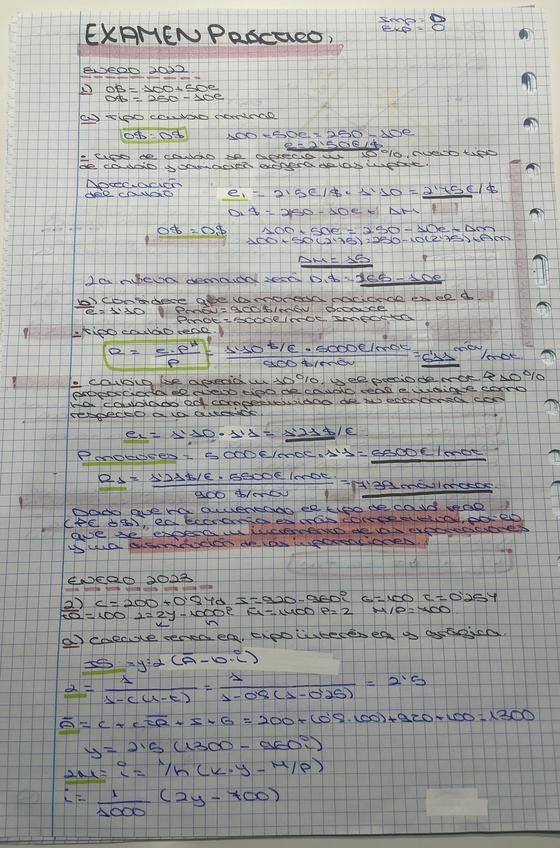 EXAMEN PRÁCTICO.
Imp = 0
Exp = 0
ENERO 2022
1) O$ = 100 + 50e
D$ = 250 - 10e
a) Tipo cambio nominal
O$ = D$ 100 + 50e = 250 - 10e
e = 2'50€/$
· Tipo de cambio se aprecia un 10%, nuevo tipo
de cambio y variación de las import.
Apreciación e₁ = 2'5€/$ · 1'10 = 2'75€/$
del cambio
D₁$ = 250 - 10e + ΔM
O$ = D₁$ 100 + 50e = 250 - 10e + ΔM
100 + 50(2'75) = 250 - 10(2'75) + ΔM
ΔM = 15
La nueva demanda será D₁$ = 265 - 10e
b) Considere que la moneda nacional es el $
e = 1'10 Pmóv = 900$/móv produce
Pmot = 5000€/mot importa
· Tipo cambio real.
R = e · P* / P = 1'10$/€ · 5000€/mot / 900$/móv = 6'11 móv/mot
· Cambio se aprecia un 10%, y el precio de mot 10%
respecto a la anterior.
e₁ = 1'10 · 1'1 = 1'21$/€
Pmotores = 5000€/mot · 1'1 = 5500€/mot
R₁ = 1'21$/€ · 5500€/mot / 900 $/móv = 7'39 móv/mot
Dado que ha aumentado el tipo de cambio real
la economía es más competitiva, por lo
que se espera un incremento de las exportaciones
y una disminución de las importaciones
ENERO 2023
2) C = 200 + 0'8Yd I = 920 - 960i G = 100 t = 0'25Y
TR = 100 L = 2Y - 1000i M = 1400 P = 2 M/P = 700
a) Calcule renta eq, tipo interés eq y gráfica
IS = Y = α (Ā - b·i)
α = 1 / 1 - c(1-t) = 1 / 1 - 0'8(1 - 0'25) = 2'5
Ā = C + cTR + I + G = 200 + (0'8·100) + 920 + 100 = 1300
Y = 2'5 (1300 - 960i)
LM = i = 1/h (k·Y - M/P)
i = 1 / 1000 (2Y - 700)